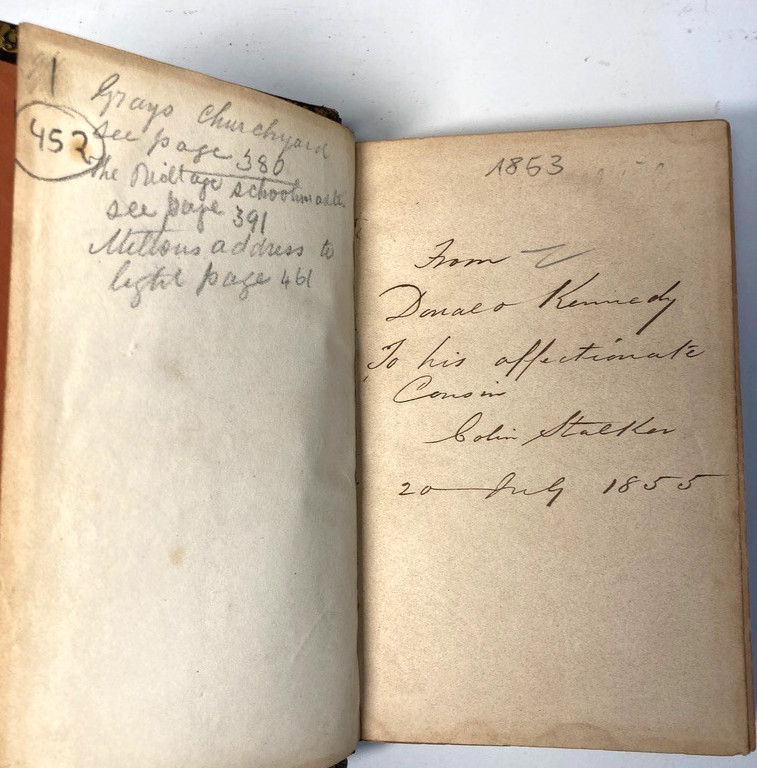 1
452
Grays Churchyard
see page 380
the schoolmaster
see page 391
Miltons address to
light page 461
1853
From
Donald Kennedy
To his affectionate
Cousin
Colin Stalker
20 July 1855